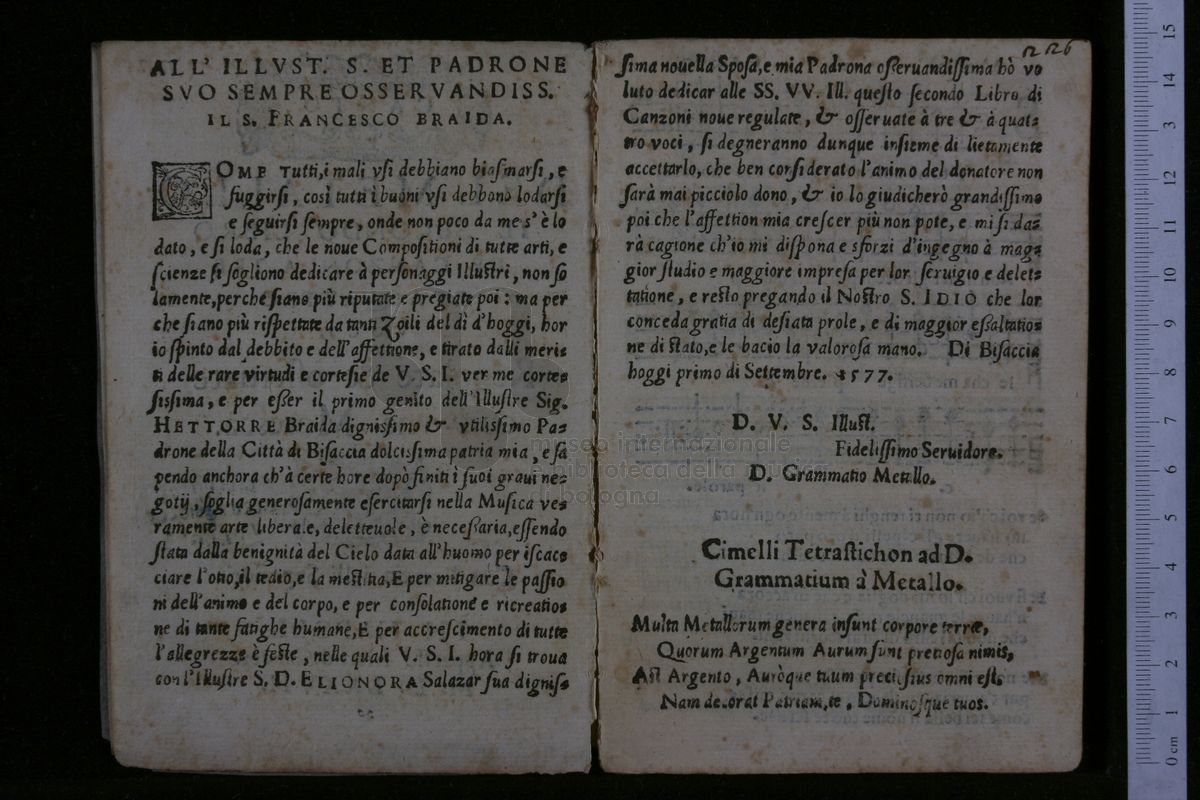 ALL' ILLVST. S. ET PADRONE
SVO SEMPRE OSSERVANDISS.
IL S. FRANCESCO BRAIDA.
COME tutti, i mali vsi debbiano biasmarsi, e
fuggirsi, così tutti i buoni vsi debbono lodarsi
e seguirsi sempre, onde non poco da me s'è lo
dato, e si loda, che le noue Compositioni di tutte arti, e
scienze si sogliono dedicare à personaggi Illustri, non so
lamente, perche siano più riputate e pregiate poi: ma per
che siano più rispettate da tanti Zoili del dì d'hoggi, hor
io spinto dal debbito e dell'affettione, e tirato dalli meri=
ti delle rare virtudi e cortesie de V. S. I. ver me corte=
sissima, e per esser il primo genito dell'Illustre Sig.
HETTORRE Braida dignissimo & vtilissimo Pa=
drone della Città di Bisaccia dolcissima patria mia, e sa
pendo anchora ch'à certe hore dopò finiti i suoi graui ne=
gotij, soglia generosamente esercitarsi nella Musica ve=
ramente arte liberale, deletteuole, è necessaria, essendo
stata dalla benignità del Cielo data all'huomo per iscac=
ciare l'otio, il tedio, e la mestitia, E per mitigare le passio
ni dell'animo e del corpo, e per consolatione e ricreatio=
ne di tante fatighe humane, E per accrescimento di tutte
l'allegrezze è feste, nelle quali V. S. I. hora si troua
con l'Illustre S. D. ELIONORA Salazar sua dignis=
126
sima nouella Sposa, e mia Padrona osseruandissima hò vo
luto dedicar alle SS. VV. Ill. questo secondo Libro di
Canzoni noue regulate, & osseruate à tre & à quat=
tro voci, si degneranno dunque insieme di lietamente
accettarlo, che ben considerato l'animo del donatore non
sarà mai picciolo dono, & io lo giudicherò grandissimo
poi che l'affettion mia crescer più non pote, e mi si da=
rà cagione ch'io mi dispona e sforzi d'ingegno à mag=
gior studio e maggiore impresa per lor seruigio e delet=
tatione, e resto pregando il Nostro S. IDIO che lor
conceda gratia di desiata prole, e di maggior essaltatio=
ne di stato, e le bacio la valorosa mano. Di Bisaccia
hoggi primo di Settembre. 1577.
D. V. S. Illust.
Fidelissimo Seruidore.
D. Grammatio Metallo.
Cimelli Tetrastichon ad D.
Grammatium à Metallo.
Multa Metallorum genera insunt corpore terræ,
Quorum Argentum Aurum sunt pretiosa nimis,
Ast Argento, Auròque tuum preciosius omni est,
Nam decorat Patriam, te, Dominosque tuos.
museo internazionale
e biblioteca della musica
di bologna
0 cm 1 2 3 4 5 6 7 8 9 10 11 12 13 14 15